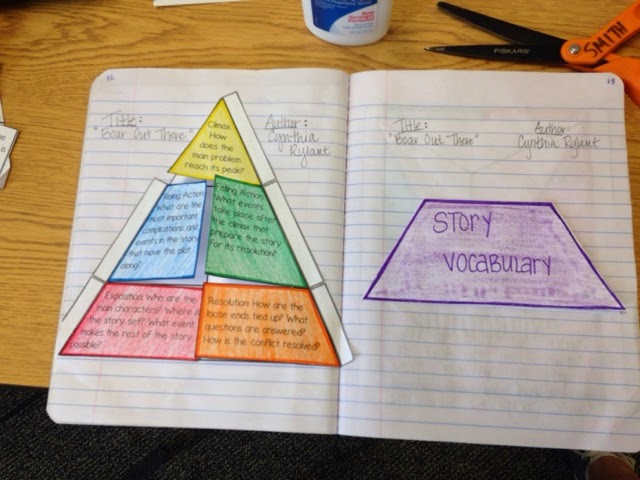 12
Title:
"Boar Out There"
Author:
Cynthia
Rylant
Climax:
How
does the
main problem
reach its peak?
Rising Action:
What are the
most important
complications and
events in the story
that move the plot
along?
Falling Action:
What events
take place after
the climax that
prepare the story
for its resolution?
Exposition: Who are the
main characters? Where is
the story set? What event
makes the rest of the story
possible?
Resolution: How are the
loose ends tied up? What
questions are answered?
How is the conflict resolved?
13
Title:
"Boar Out There"
Author
Cynthia Rylant
STORY
VOCABULARY
FISKARS
SMITH